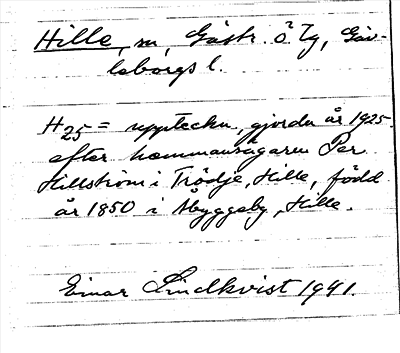 Hille, sn, Gästr. ö Tg, Gäv-
leborgs l.
H25 = uppteckn., gjorda år 1925
efter hemmansägaren Per
Hillström i Trödje, Hille, född
år 1850 i Åbyggeby, Hille.
Einar Lindkvist 1941.